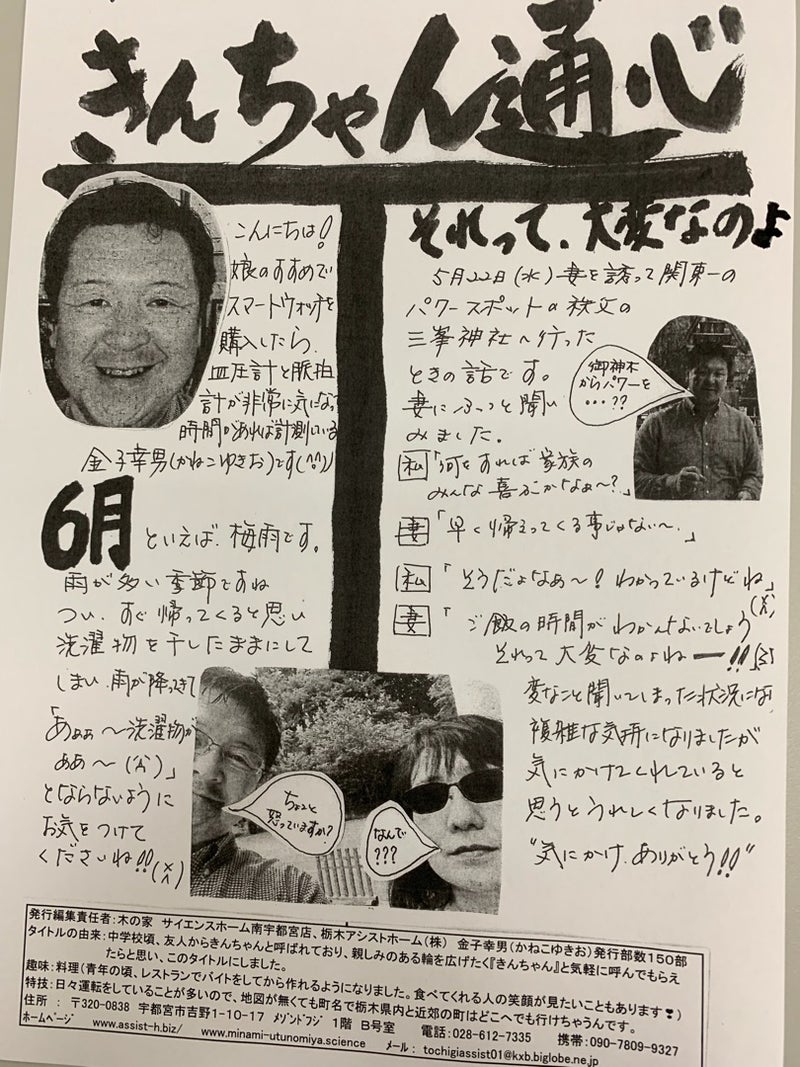 きんちゃん通心
こんにちは!
娘のすすめで
スマートウォッチを
購入したら、
血圧計と脈拍
計が非常に気になって
時間があれば計測している
金子幸男(かねこゆきお)です(^^)
6月といえば、梅雨です。
雨が多い季節ですね
つい、すぐ帰ってくると思い
洗濯物を干したままにして
しまい、雨が降ってきて
「あぁぁ〜洗濯物が
ぁぁ〜(公)」
とならないように
お気をつけて
くださいね!!(笑)
それって、大変なのよ
5月22日(水)妻を誘って関東一の
パワースポットの秩父の
三峯神社へ行った
ときの話です。
妻にふっと聞い
みました。
御神木
からパワーを
・・・??
私「何をすれば家族の
みんな喜ぶかなぁ〜?」
妻「早く帰えってくる事じゃない〜。」
私「そうだよなぁ〜!わかっているけどね」
妻「ご飯の時間がわかんないでしょう
それって大変なのよねー!!」
変なこと聞いてしまった状況にな
複雑な気持になりましたが
気にかけてくれていると
思うとうれしくなりました。
"気にかけ、ありがとう!!"
ちょこっと
怒っていますか?
なんで
???
発行編集責任者:木の家 サイエンスホーム南宇都宮店、栃木アシストホーム(株) 金子幸男(かねこゆきお)発行部数150部
タイトルの由来:中学校頃、友人からきんちゃんと呼ばれており、親しみのある輪を広げたく『きんちゃん』と気軽に呼んでもらえ
たらと思い、このタイトルにしました。
趣味:料理(青年の頃、レストランでバイトをしてから作れるようになりました。食べてくれる人の笑顔が見たいこともあります❣)
特技:日々運転をしていることが多いので、地図が無くても町名で栃木県内と近郊の町はどこへでも行けちゃうんです。
住所 : 〒320-0838 宇都宮市吉野1-10-17 メゾンドフジ 1階 B号室 電話:028-612-7335 携帯:090-7809-9327
ホームページ www.assist-h.biz/ www.minami-utunomiya.science メール: tochigiassist01@kxb.biglobe.ne.jp